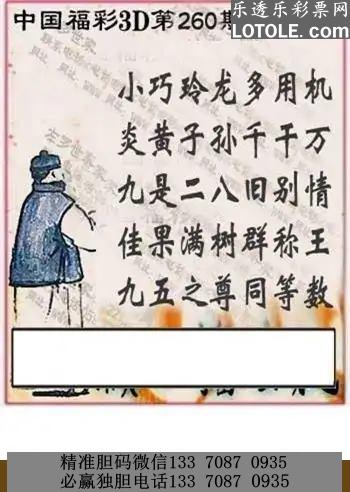 乐透乐彩票网
中国福彩3D第260期
LOTOLE.COM
小巧玲龙多用机
炎黄子孙千千万
九是二八旧别情
佳果满树群称王
九五之尊同等数
精准胆码微信133 7087 0935
必赢独胆电话133 7087 0935